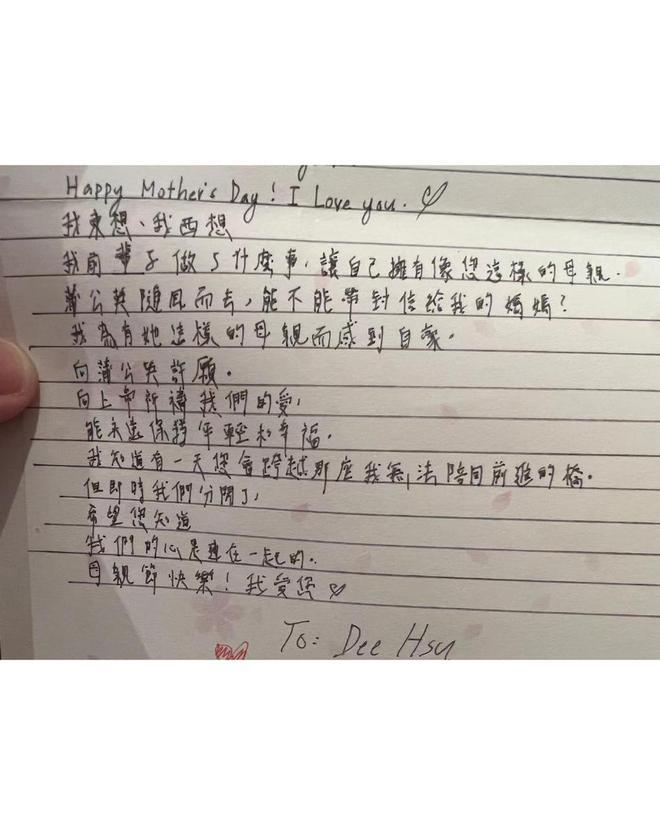 Happy Mother's Day! I Love you. ♡
我東想、我西想
我前輩子做了什麼事，讓自己擁有像您這樣的母親.
蒲公英隨風而去，能不能帶封信給我的媽媽？
我為有她這樣的母親而感到自豪。
向蒲公英許願。
向上帝祈禱我們的愛，
能永遠保持年輕和幸福。
我知道有一天您會跨越那座我無法陪同前進的橋。
但即時我們分開了，
希望您知道
我們的心是連在一起的.
母親節快樂！我愛您♡
To: Dee Hsu